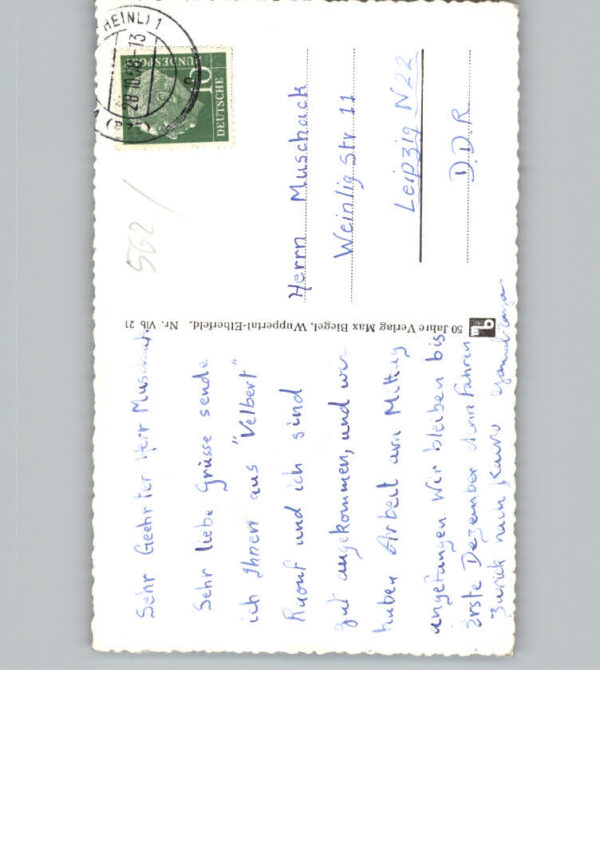 Sehr Geehrter Herr Muschack
Sehr liebe Grüsse sende
ich Ihnen aus "Velbert"
Raouf und ich sind
gut angekommen, und wir
haben Arbeit am Mittag
angefangen. Wir bleiben bis
erste Dezember dann Fahren
zurück nach Kairo
50 Jahre Verlag Max Biegel, Wuppertal-Elberfeld. Nr. Vlb 21
562/
HEINL) 1
-13
DEUTSCHE
BUNDESPOST
10
Herrn Muschack
Weinlig Str 11
Leipzig N22
D.D.R